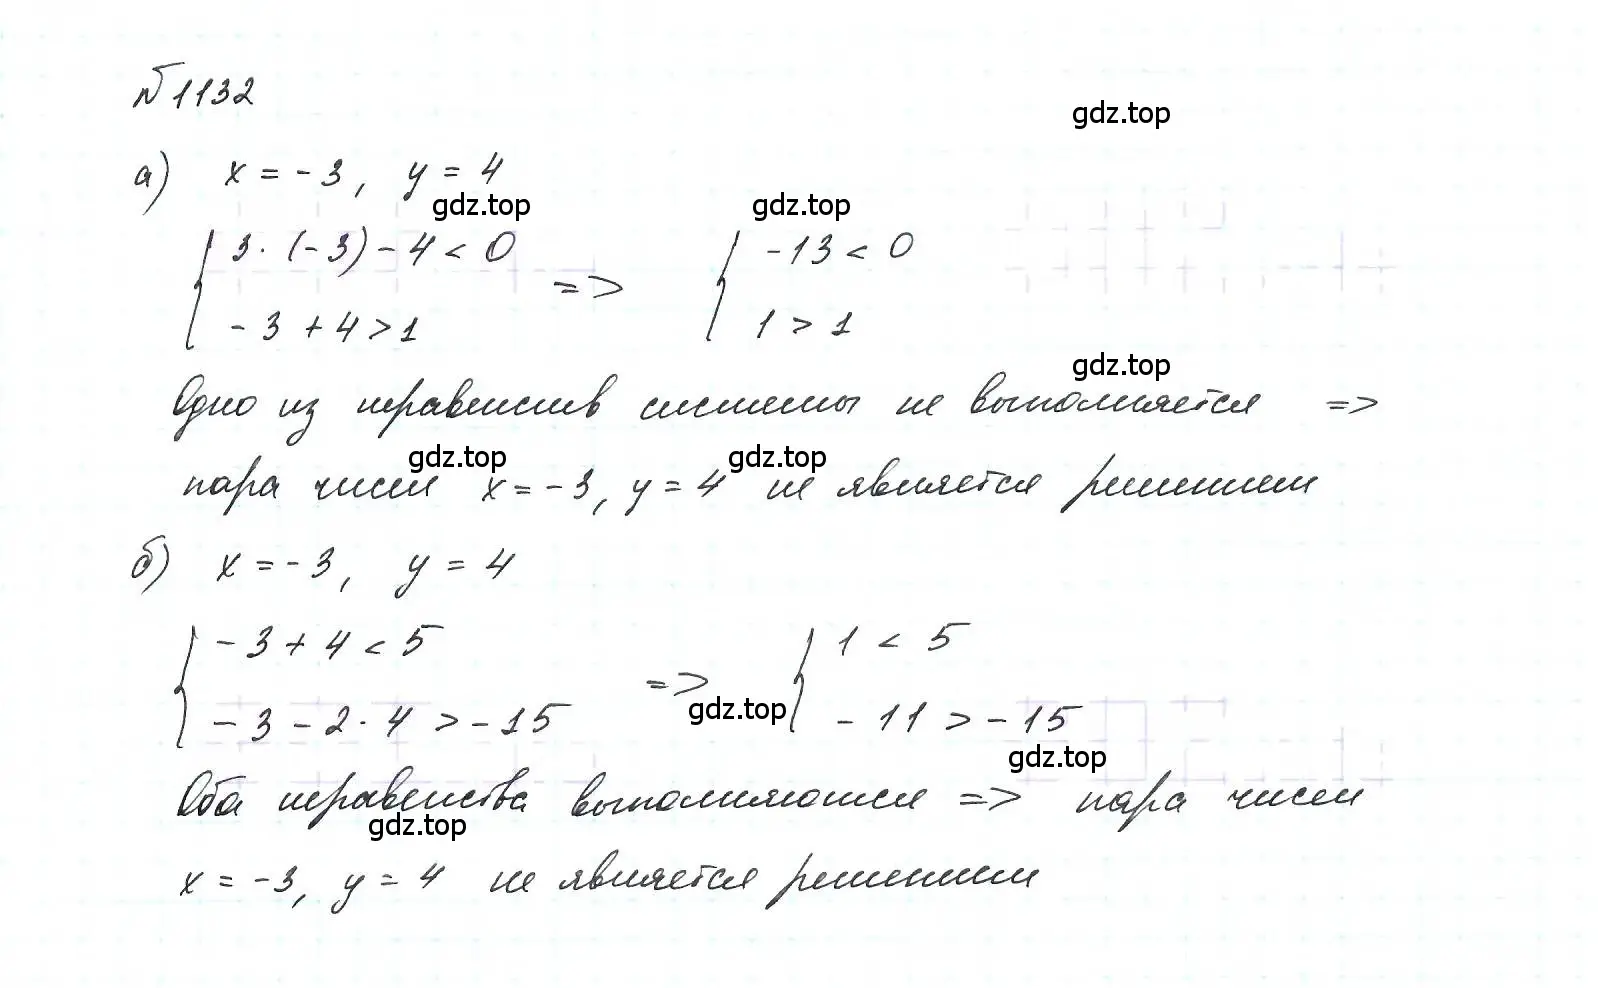 №1132
gdz.top
а) x = -3, y = 4
gdz.top gdz.top
{ 3·(-3)-4 < 0 => { -13 < 0
-3+4>1 1 > 1
gdz.top
Одно из неравенств системы не выполняется =>
gdz.top gdz.top
пара чисел x=-3, y=4 не является решением
б) x = -3, y = 4
{ -3+4 < 5 => { 1 < 5
-3-2·4 > -15 -11 > -15
gdz.top
gdz.top
Оба неравенства выполняются => пара чисел
gdz.top
x = -3, y = 4 не является решением